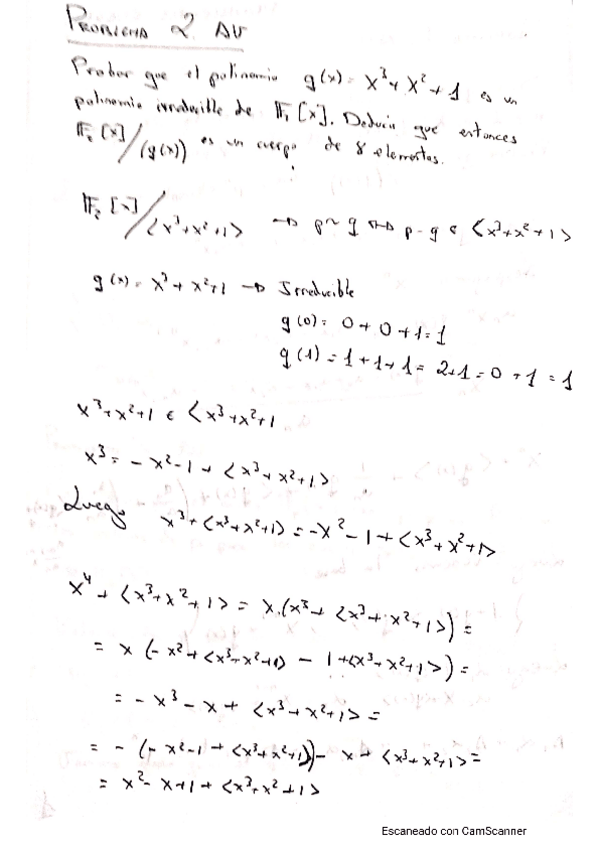 PROBLEMA 2 AV
Probar que el polinomio g(x) = x³ + x² + 1 es un
polinomio irreducible de 𝔽₂[x]. Deducir que entonces
𝔽₂[x]/(g(x)) es un cuerpo de 8 elementos.
𝔽₂[x]/<x³+x²+1> → p~q ↔ p-q ∈ <x³+x²+1>
g(x) = x³ + x²+1 → Irreducible
g(0) = 0 + 0 + 1 = 1
g(1) = 1 + 1 + 1 = 2+1 = 0 + 1 = 1
x³+x²+1 ∈ <x³+x²+1
x³ = - x²-1 + <x³+x²+1>
Luego x³+<x³+x²+1> = -x²-1+<x³+x²+1>
x⁴ + <x³+x²+1> = x.(x³+ <x³+x²+1>) =
= x (-x²+<x³+x²+1> - 1+<x³+x²+1>) =
= - x³ - x + <x³+x²+1> =
= - (-x²-1 + <x³+x²+1>) - x + <x³+x²+1> =
= x² - x+1 + <x³+x²+1>
Escaneado con CamScanner